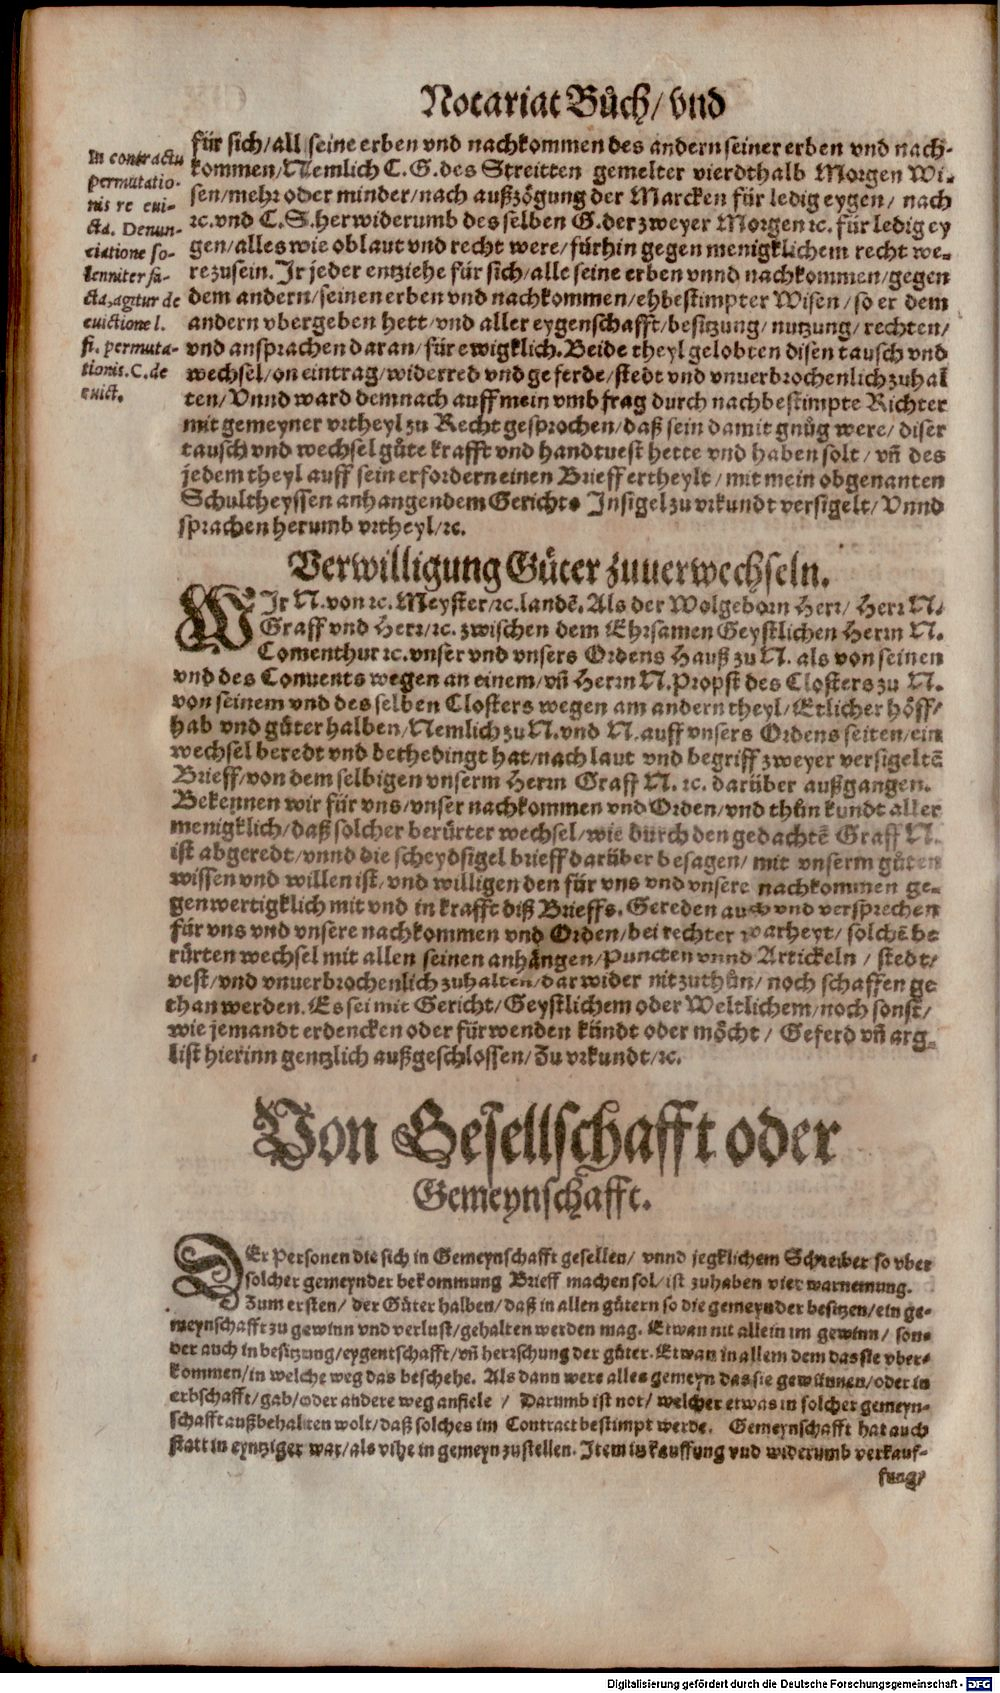 Notariat Bůch/ vnd
In contractu
permutatio-
nis re eui-
cta. Denun-
ciatione so-
lenniter fa-
cta, agitur de
euictione l.
si. permuta-
tionis. C. de
euict.
für sich/ all seine erben vnd nachkommen des andern seiner erben vnd nach-
kommen/ Nemlich C. G. des Streitten gemelter vierdthalb Morgen Wi-
sen/ mehr oder minder/ nach außzögung der Marcken für ledig eygen/ nach
ꝛc. vnd C. S. herwiderumb des selben G. der zweyer Morgen ꝛc. für ledig ey
gen/ alles wie ob laut vnd recht were/ fürhin gegen menigklichem recht we-
re zusein. Ir jeder entziehe für sich/ alle seine erben vnnd nachkommen/ gegen
dem andern/ seinen erben vnd nachkommen/ ehbestimpter Wisen/ so er dem
andern vbergeben hett/ vnd aller eygenschafft/ besitzung/ nutzung/ rechten/
vnd ansprachen daran/ für ewigklich. Beide theyl gelobten disen tausch vnd
wechsel/ on eintrag/ widerred vnd geferde/ stedt vnd vnuerbrochenlich zuhal
ten/ Vnnd ward demnach auff mein vmbfrag durch nachbestimpte Richter
mit gemeyner vrtheyl zu Recht gesprochen/ daß sein damit gnůg were/ diser
tausch vnd wechsel gůte krafft vnd handtuest hette vnd haben solt/ vñ des
jedem theyl auff sein erfordern einen Brieff ertheylt/ mit mein obgenanten
Schultheyssen anhangendem Gerichts Insigel zu vrkundt versigelt/ Vnnd
sprachen herumb vrtheyl/ ꝛc.
Verwilligung Güter zuuerwechseln.
WIr N. von ꝛc. Meyster/ ꝛc. landẽ. Als der Wolgeborn Herr/ Herr N.
Graff vnd Herr/ ꝛc. zwischen dem Ehrsamen Geystlichen Herrn N.
Comenthur ꝛc. vnser vnd vnsers Ordens Hauß zu N. als von seinen
vnd des Conuents wegen an einem/ vñ Herrn N. Propst des Closters zu N.
von seinem vnd des selben Closters wegen am andern theyl/ Etlicher höff/
hab vnd güter halben/ Nemlich zu N. vnd N. auff vnsers Ordens seiten/ ein
wechsel beredt vnd bethedingt hat/ nach laut vnd begriff zweyer versigeltẽ
Brieff/ von dem selbigen vnserm Herrn Graff N. ꝛc. darüber außgangen.
Bekennen wir für vns/ vnser nachkommen vnd Orden/ vnd thůn kundt aller
menigklich/ daß solcher berürter wechsel/ wie durch den gedachtẽ Graff N.
ist abgeredt/ vnnd die scheydsigel brieff darüber besagen/ mit vnserm gůten
wissen vnd willen ist/ vnd willigen den für vns vnd vnsere nachkommen ge-
genwertigklich mit vnd in krafft diß Brieffs. Gereden auch vnd versprechen
für vns vnd vnsere nachkommen vnd Orden/ bei rechter warheyt/ solchẽ be
rürten wechsel mit allen seinen anhängen/ Puncten vnnd Artickeln/ stedt/
vest/ vnd vnuerbrochenlich zuhalten/ darwider nit zuthůn/ noch schaffen ge
than werden. Es sei mit Gericht/ Geystlichem oder Weltlichem/ noch sonst/
wie jemandt erdencken oder fürwenden kündt oder möcht/ Geferd vñ arg-
list hierinn gentzlich außgeschlossen/ Zu vrkundt/ ꝛc.
Von Gesellschafft oder
Gemeynschafft.
DEr Personen die sich in Gemeynschafft gesellen/ vnnd jegklichem Schreiber so vber
solcher gemeynder bekommung Brieff machen sol/ ist zuhaben vier warnemung.
Zum ersten/ der Güter halben/ daß in allen gütern so die gemeynder besitzen/ ein ge-
meynschafft zu gewinn vnd verlust/ gehalten werden mag. Etwan nit allein im gewinn/ son-
der auch in besitzung/ eygentschafft/ vñ herrschung der güter. Etwan in allem dem das sie vber-
kommen/ in welche weg das beschehe. Als dann were alles gemeyn das sie gewünnen/ oder in
erbschafft/ gab/ oder andere weg anfiele/ Darumb ist not/ welcher etwas in solcher gemeyn-
schafft außbehalten wolt/ daß solches im Contract bestimpt werde. Gemeynschafft hat auch
statt in eyntziger war/ als vihe in gemeyn zustellen. Item in kauffung vnd widerumb verkauf-
fung/
Digitalisierung gefördert durch die Deutsche Forschungsgemeinschaft - DFG